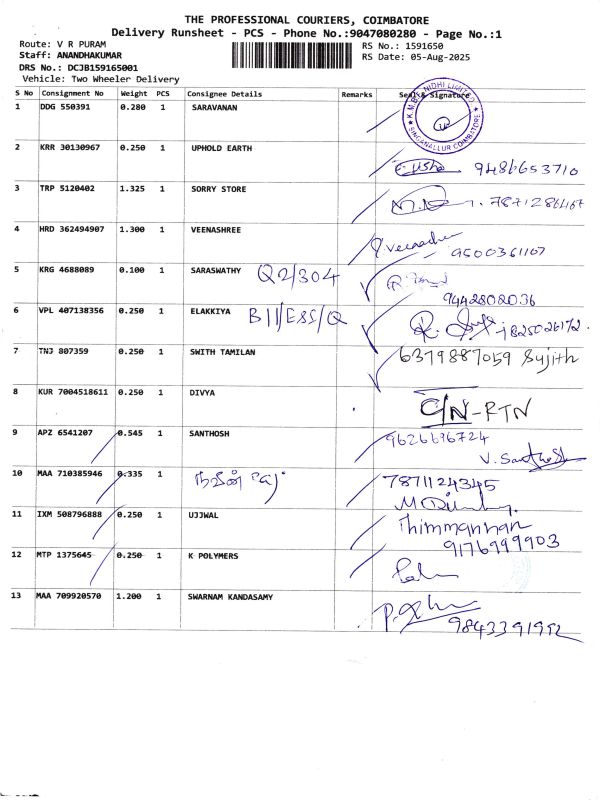 THE PROFESSIONAL COURIERS, COIMBATORE
Delivery Runsheet - PCS - Phone No.:9047080280 - Page No.:1
Route: V R PURAM
Staff: ANANDHAKUMAR
DRS No.: DCJB159165001
Vehicle: Two Wheeler Delivery
RS No.: 1591650
RS Date: 05-Aug-2025
S No Consignment No Weight PCS Consignee Details Remarks Seal & Signature
1 DDG 550391 0.280 1 SARAVANAN
K.M.B. NIDHI LIMITED
SINGANALLUR COIMBATORE
2 KRR 30130967 0.250 1 UPHOLD EARTH
9486653710
3 TRP 5120402 1.325 1 SORRY STORE
7871286467
4 HRD 362494907 1.300 1 VEENASHREE
9500361107
5 KRG 4688089 0.100 1 SARASWATHY Q2/304
9442802036
6 VPL 407138356 0.250 1 ELAKKIYA B11/ESS/Q
7825026172.
7 TNJ 807359 0.250 1 SWITH TAMILAN 6379887059 Sujith
8 KUR 7004518611 0.250 1 DIVYA C/N-RTN
9 APZ 6541207 0.545 1 SANTHOSH 9626696724
V. Santhosh
10 MAA 710385946 0.335 1 நவீன் 7871124345
11 IXM 508796888 0.250 1 UJJWAL Thimmannan
9176999903
12 MTP 1375645 0.250 1 K POLYMERS
13 MAA 709920570 1.200 1 SWARNAM KANDASAMY
9843391992